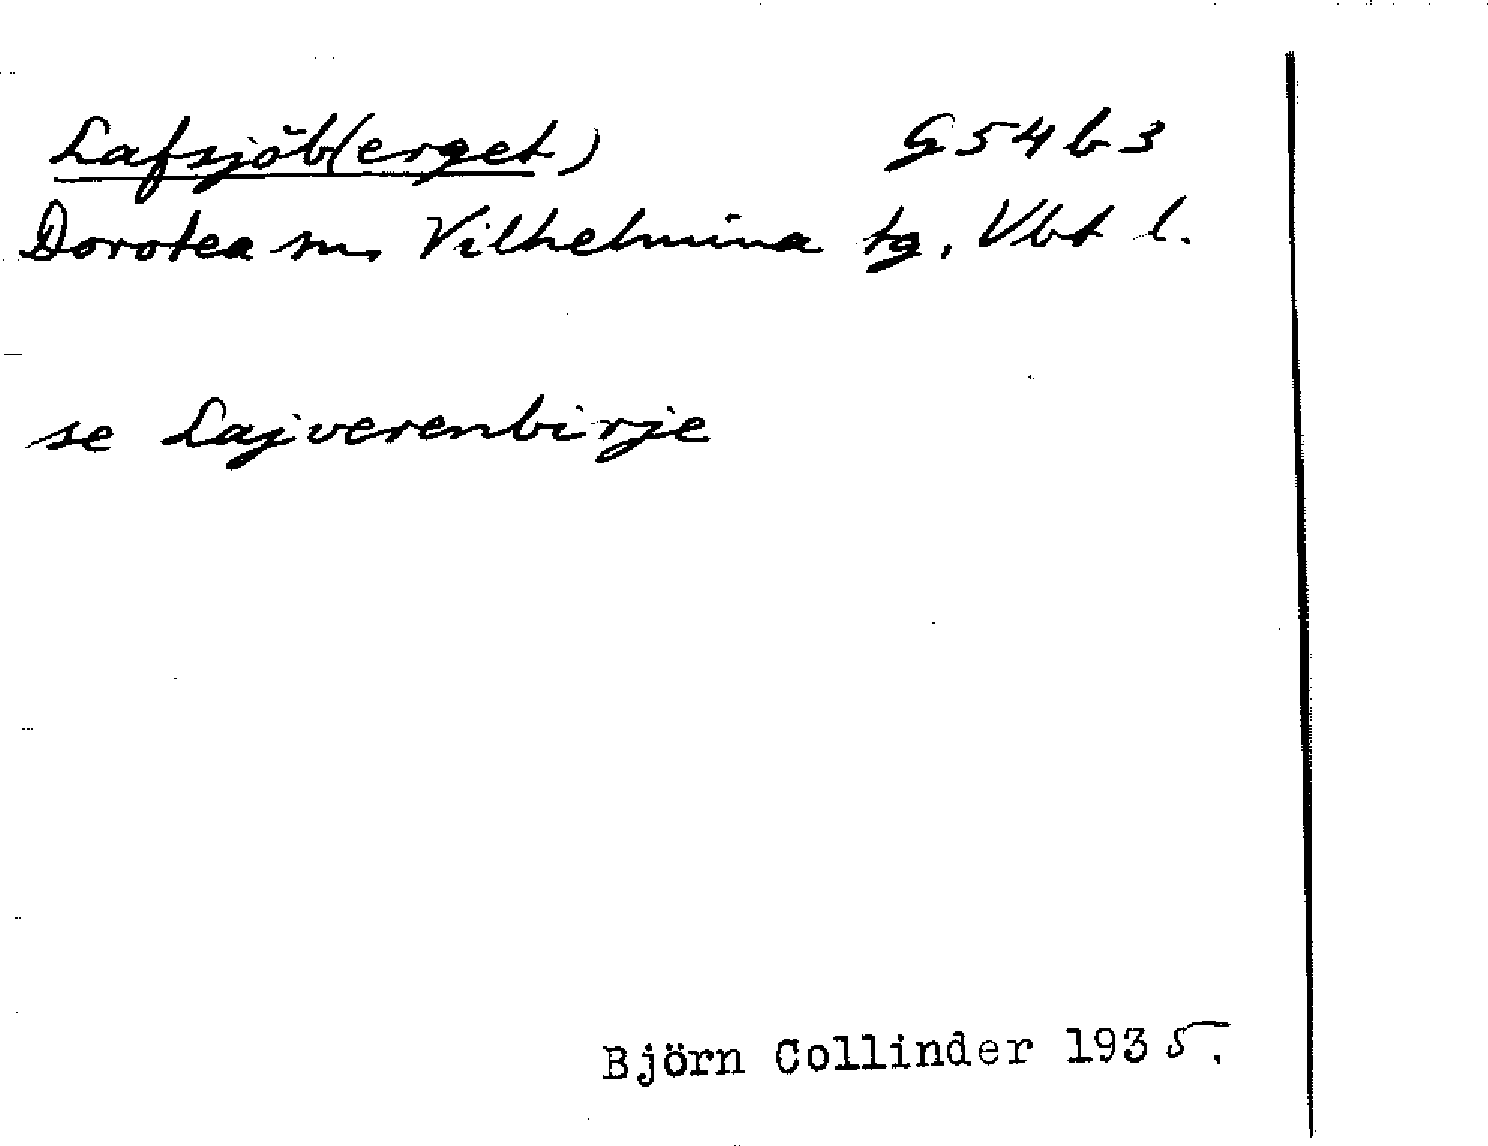 Lafsjöb(erget) G 54 b 3
Dorotea sn, Vilhelmina tg, Vbt l.
se Lajverenbirje
Björn Collinder 1935.